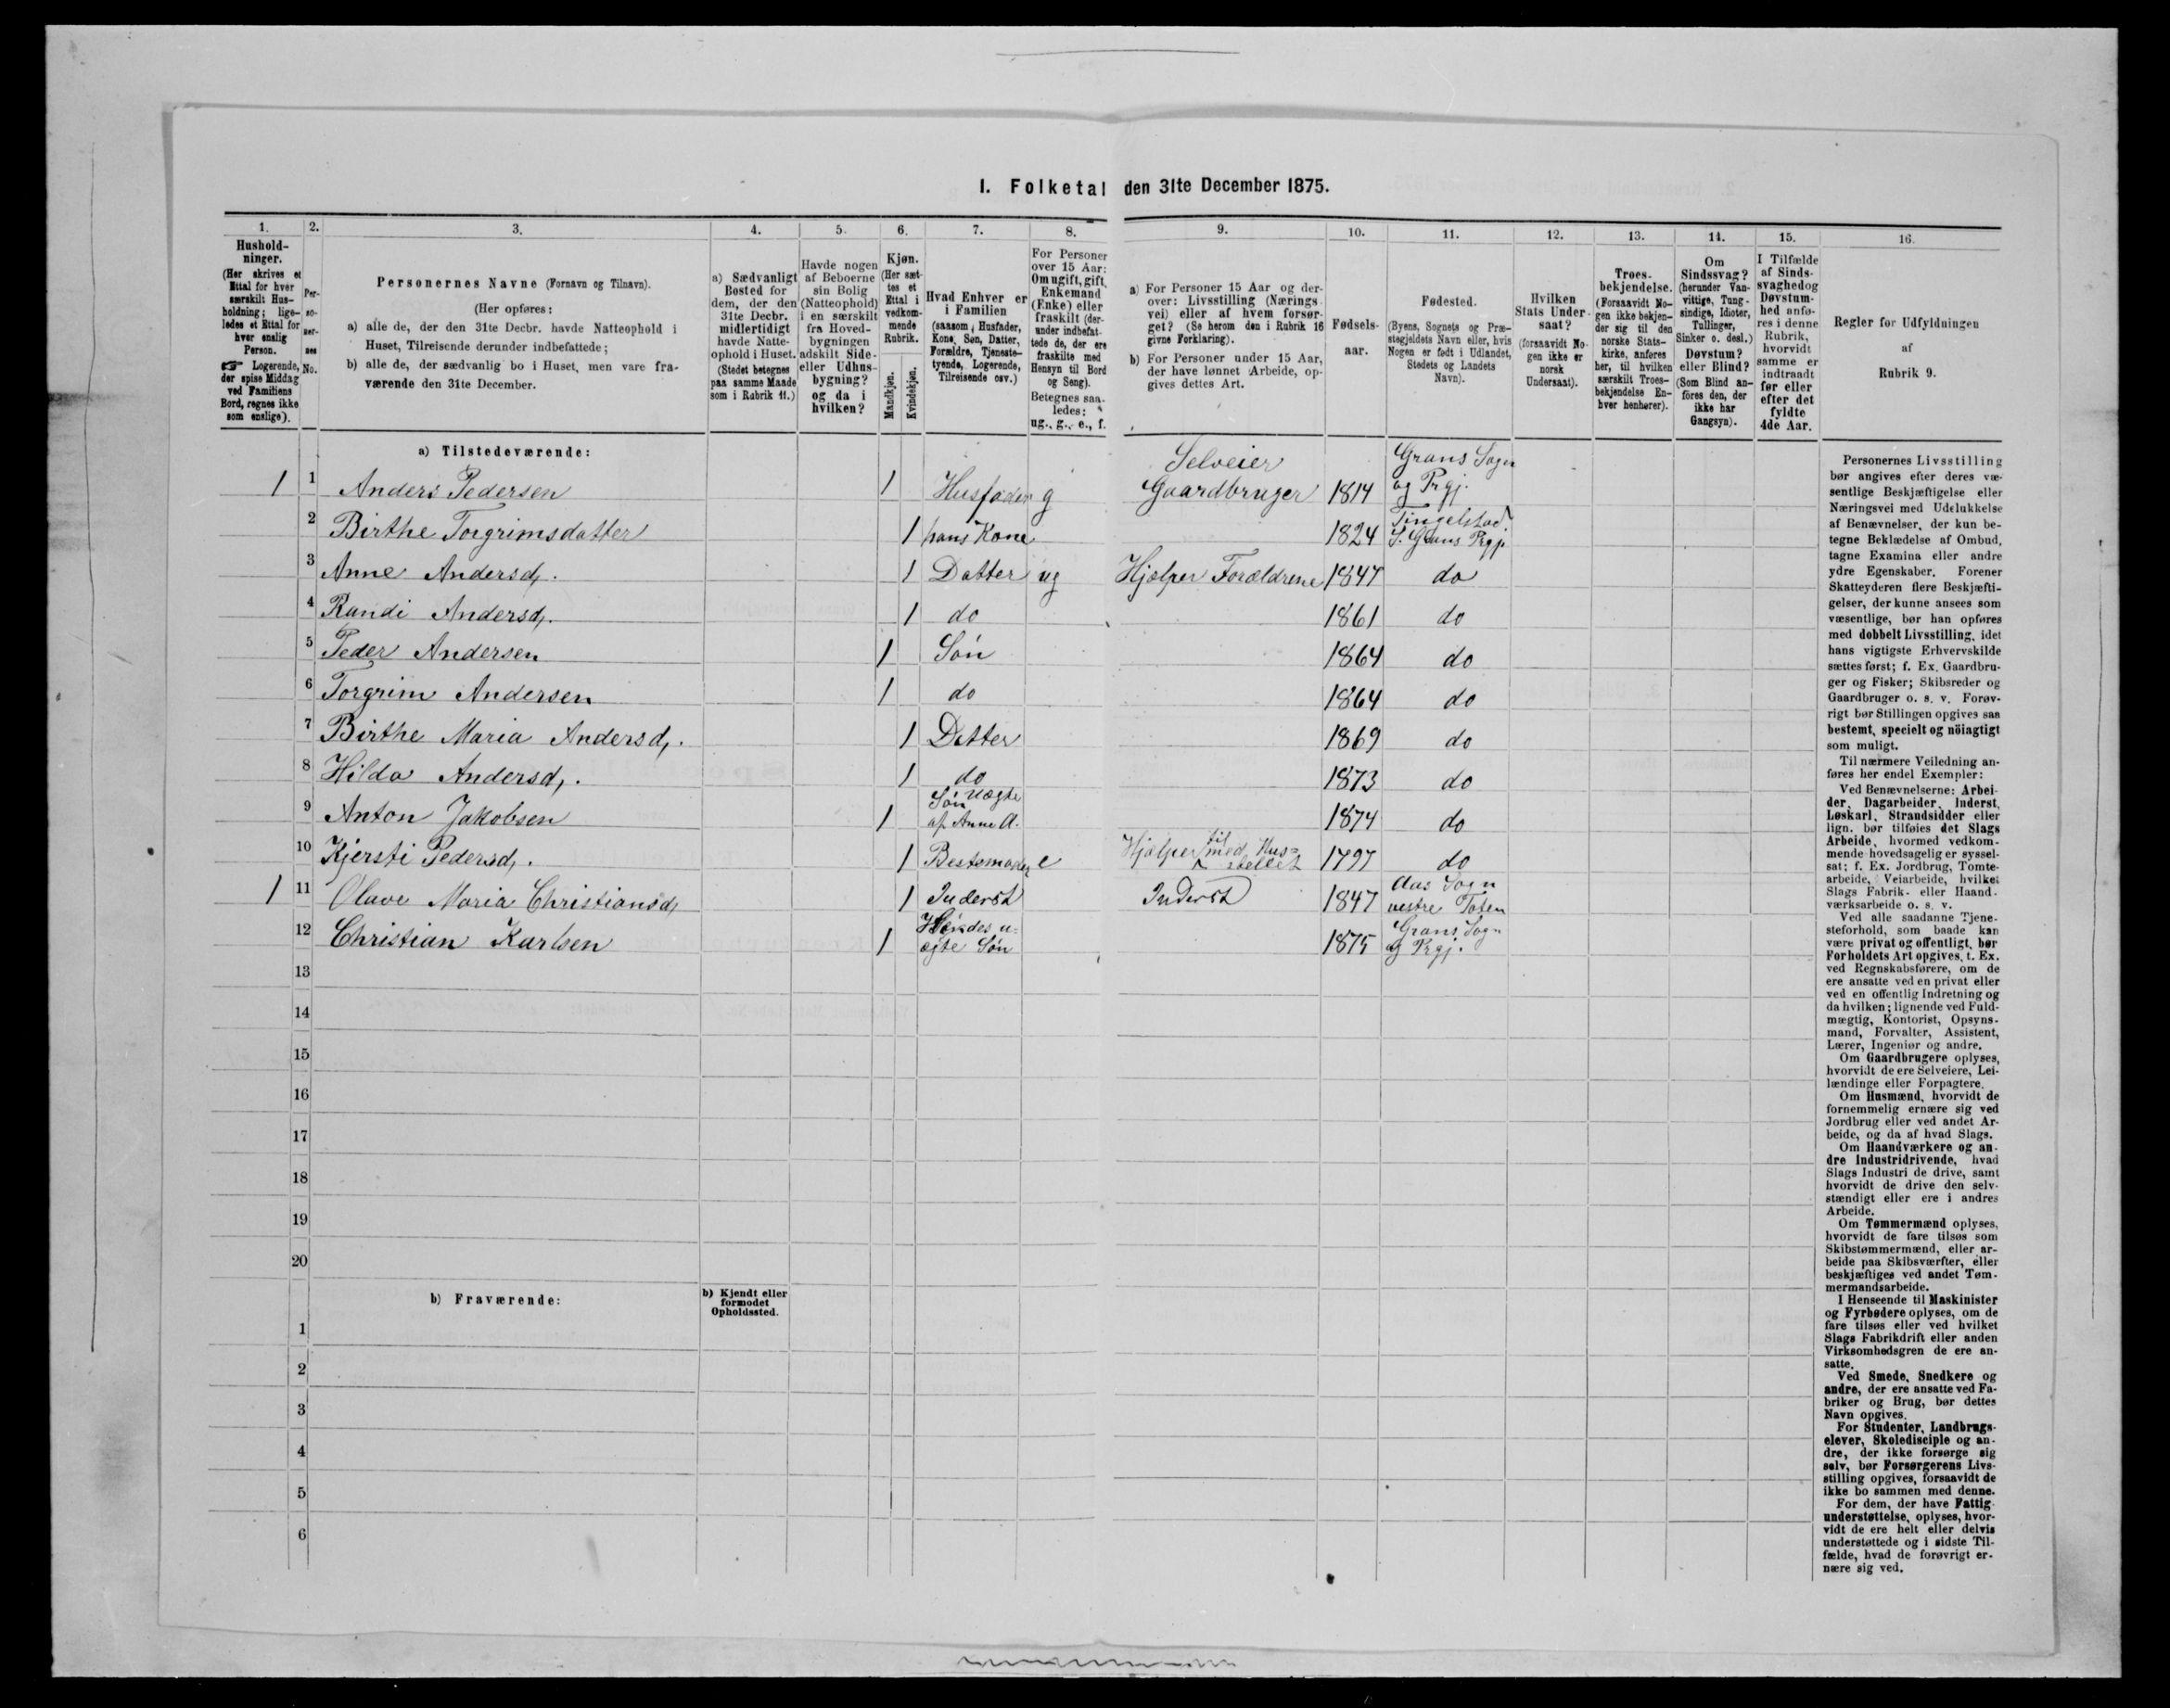 I. Folketal den 31te December 1875.
1.
Hushold-
ninger.
(Her skrives et
Ettal for hver
særskilt Hus-
holdning; lige-
ledes et Ettal for
hver enslig
Person.
☞ Logerende,
der spise Middag
ved Familiens
Bord, regnes ikke
som enslige).
2.
Per-
so-
ner-
nes
No.
3.
Personernes Navne (Fornavn og Tilnavn).
(Her opføres:
a) alle de, der den 31te Decbr. havde Natteophold i
Huset, Tilreisende derunder indbefattede;
b) alle de, der sædvanlig bo i Huset, men vare fra-
værende den 31te December.
4.
a) Sædvanligt
Bosted for
dem, der den
31te Decbr.
midlertidigt
havde Natte-
ophold i Huset.
(Stedet betegnes
paa samme Maade
som i Rubrik 11.)
5.
Havde nogen
af Beboerne
sin Bolig
(Natteophold)
i en særskilt
fra Hoved-
bygningen
adskilt Side-
eller Udhus-
bygning?
og da i
hvilken?
6.
Kjøn.
(Her sæt-
tes et
Ettal i
vedkom-
mende
Rubrik.
Mandkjøn.
Kvindekjøn.
7.
Hvad Enhver er
i Familien
(saasom Husfader,
Kone, Søn, Datter,
Forældre, Tjeneste-
tyende, Logerende,
Tilreisende osv.)
8.
For Personer
over 15 Aar:
Om ugift, gift,
Enkemand
(Enke) eller
fraskilt (der-
under indbefat-
tede de, der ere
fraskilte med
Hensyn til Bord
og Seng).
Betegnes saa-
ledes:
ug., g., e., f.
9.
a) For Personer 15 Aar og der-
over: Livsstilling (Nærings-
vei) eller af hvem forsør-
get? (Se herom den i Rubrik 16
givne Forklaring).
b) For Personer under 15 Aar,
der have lønnet Arbeide, op-
gives dettes Art.
10.
Fødsels-
aar.
11.
Fødested.
(Byens, Sognets og Præ-
stegjeldets Navn eller, hvis
Nogen er født i Udlandet,
Stedets og Landets
Navn).
12.
Hvilken
Stats Under-
saat?
(forsaavidt No-
gen ikke er
norsk
Undersaat).
13.
Troes-
bekjendelse.
(Forsaavidt No-
gen ikke bekjen-
der sig til den
norske Stats-
kirke, anføres
her, til hvilken
særskilt Troes-
bekjendelse En-
hver henhører).
14.
Om
Sindssvag?
(herunder Van-
vittige, Tung-
sindige, Idioter,
Tullinger,
Sinker o. desl.)
Døvstum?
eller Blind?
(Som Blind an-
føres den, der
ikke har
Gangsyn).
15.
I Tilfælde
af Sinds-
svaghed og
Døvstum-
hed anfø-
res i denne
Rubrik,
hvorvidt
samme er
indtraadt
før eller
efter det
fyldte
4de Aar.
16.
Regler for Udfyldningen
af
Rubrik 9.
a) Tilstedeværende:
1 1 Anders Pedersen 1 Husfader g Selveier Gaardbruger 1814 Grans Sogn og Prgj.
2 Birthe Torgrimsdatter 1 hans Kone 1824 Tingelstad S. Grans Prgj.
3 Anne Andersd. 1 Datter ug Hjælper Forældrene 1847 do
4 Randi Andersd. 1 do 1861 do
5 Peder Andersen 1 Søn 1864 do
6 Torgrim Andersen 1 do 1864 do
7 Birthe Maria Andersd. 1 Datter 1869 do
8 Hilda Andersd. 1 do 1873 do
9 Anton Jakobsen 1 Søn uægte af Anne A. 1874 do
10 Kjersti Pedersd. 1 Bestemoder e Hjælper til med Hus= stellet 1797 do
1 11 Olave Maria Christiansd. 1 Inderst Inderst 1847 Aas Sogn vestre Toten
12 Christian Karlsen 1 Hendes u= ægte Søn 1875 Grans Sogn og Prgj.
13
14
15
16
17
18
19
20
b) Fraværende:
b) Kjendt eller
formodet
Opholdssted.
1
2
3
4
5
6
Personernes Livsstilling
bør angives efter deres væ-
sentlige Beskjæftigelse eller
Næringsvei med Udelukkelse
af Benævnelser, der kun be-
tegne Beklædelse af Ombud,
tagne Examina eller andre
ydre Egenskaber. Forener
Skatteyderen flere Beskjæfti-
gelser, der kunne ansees som
væsentlige, bør han opføres
med dobbelt Livsstilling, idet
hans vigtigste Erhvervskilde
sættes først; f. Ex. Gaardbru-
ger og Fisker; Skibsreder og
Gaardbruger o. s. v. Forøv-
rigt bør Stillingen opgives saa
bestemt, specielt og nöiagtigt
som muligt.
Til nærmere Veiledning an-
føres her endel Exempler:
Ved Benævnelserne: Arbei-
der, Dagarbeider, Inderst,
Løskarl, Strandsidder eller
lign. bør tilføies det Slags
Arbeide, hvormed vedkom-
mende hovedsagelig er syssel-
sat; f. Ex. Jordbrug, Tomte-
arbeide, Veiarbeide, hvilket
Slags Fabrik- eller Haand-
værksarbeide o. s. v.
Ved alle saadanne Tjene-
steforhold, som baade kan
være privat og offentligt, bør
Forholdets Art opgives, t. Ex.
ved Regnskabsførere, om de
ere ansatte ved en privat eller
ved en offentlig Indretning og
da hvilken; lignende ved Fuld-
mægtig, Kontorist, Opsyns-
mand, Forvalter, Assistent,
Lærer, Ingeniør og andre.
Om Gaardbrugere oplyses,
hvorvidt de ere Selveiere, Lei-
lændinge eller Forpagtere.
Om Husmænd, hvorvidt de
fornemmelig ernære sig ved
Jordbrug eller ved andet Ar-
beide, og da af hvad Slags.
Om Haandværkere og an-
dre Industridrivende, hvad
Slags Industri de drive, samt
hvorvidt de drive den selv-
stændigt eller ere i andres
Arbeide.
Om Tømmermænd oplyses,
hvorvidt de fare tilsøs som
Skibstømmermænd, eller ar-
beide paa Skibsværfter, eller
beskjæftiges ved andet Tøm-
mermandsarbeide.
I Henseende til Maskinister
og Fyrbødere oplyses, om de
fare tilsøs eller ved hvilket
Slags Fabrikdrift eller anden
Virksomhedsgren de ere an-
satte.
Ved Smede, Snedkere og
andre, der ere ansatte ved Fa-
briker og Brug, bør dettes
Navn opgives.
For Studenter, Landbrugs-
elever, Skoledisciple og an-
dre, der ikke forsørge sig
selv, bør Forsørgerens Livs-
stilling opgives, forsaavidt de
ikke bo sammen med denne.
For dem, der have Fattig-
understøttelse, oplyses, hvor-
vidt de ere helt eller delvis
understøttede og i sidste Til-
fælde, hvad de forøvrigt er-
nære sig ved.